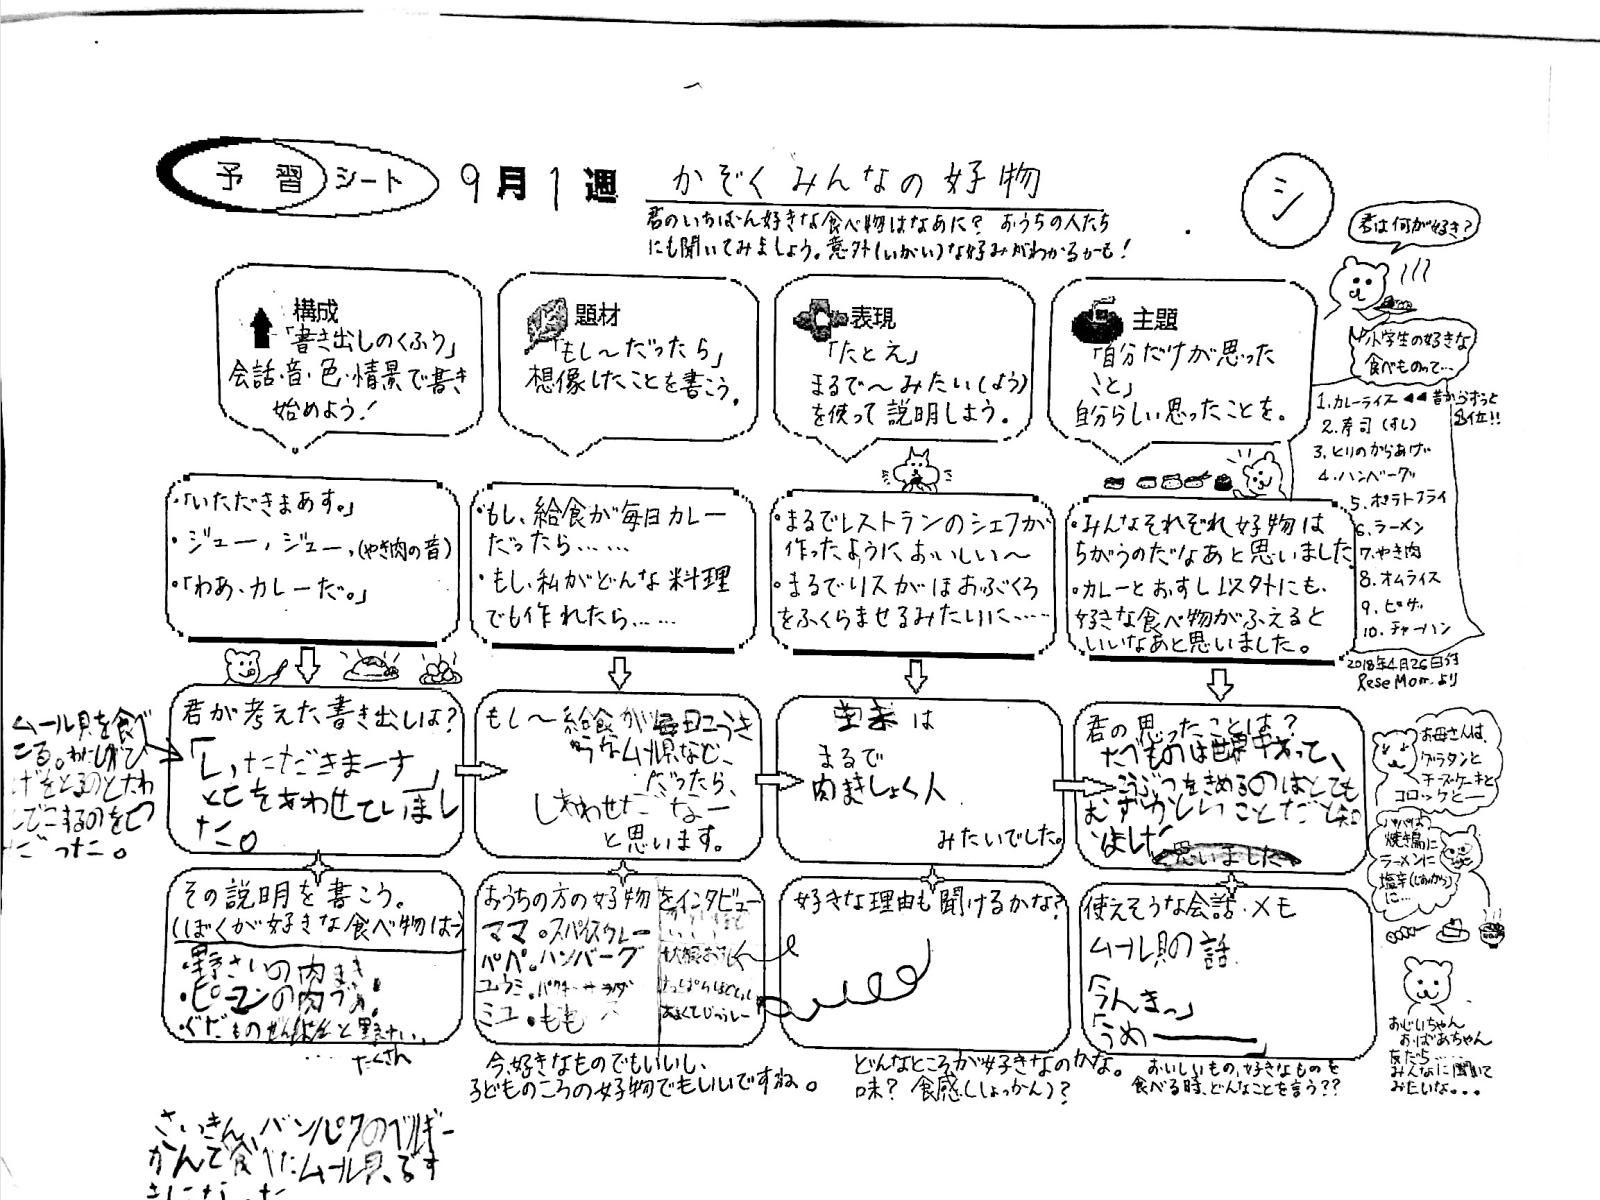 予習シート 9月1週 かぞくみんなの好物
シ
君のいちばん好きな食べ物はなあに？ おうちの人たち
にも聞いてみましょう。意外(いがい)な好みがわかるかも！
君は何が好き？
小学生の好きな
食べものって…
1.カレーライス ◀◀昔からずっと
1位!!
2.寿司(すし)
3.とりのからあげ
4.ハンバーグ
5.ポテトフライ
6.ラーメン
7.やき肉
8.オムライス
9.ピザ
10.チャーハン
2018年4月26日付
ReseMom.より
構成
「書き出しのくふう」
会話・音・色・情景で書き
始めよう！
題材
「もし〜だったら」
想像したことを書こう。
表現
「たとえ」
まるで〜みたい(よう)
を使って説明しよう。
主題
「自分だけが思った
こと」
自分らしい思ったことを。
・「いただきまあす。」
・ジュー、ジュー、(やき肉の音)
・「わあ、カレーだ。」
・もし、給食が毎日カレー
だったら……
・もし、私がどんな料理
でも作れたら……
・まるでレストランのシェフが
作ったようにおいしい〜
・まるでリスがほおぶくろ
をふくらませるみたいに……
・みんなそれぞれ好物は
ちがうのだなあと思いました
・カレーとおすし以外にも、
好きな食べ物がふえると
いいなあと思いました。
ムール貝を食べ
君が考えた書き出しは？
「いただきまーす」
もし〜給食が毎日
ムール貝など、
だったら、
しあわせだなー
と思います。
は
まるで
肉まきしょく人
みたいでした。
君の思ったことは？
こうぶつをきめるのはとても
むずかしいことだと
思いました
お母さんは、
グラタンと
チーズケーキと
コロッケと―
パパは
焼き鳥に
ラーメンに
塩辛(しおから)
に…
その説明を書こう。
(ぼくが好きな食べ物は〜)
・野さいの肉まき
・ピーマンの肉づめ
たくさん
おうちの方の好物をインタビュー
ママ・スパイスカレー
パパ・ハンバーグ
ミユ・もも
好きな理由も聞けるかな？
使えそうな会話・メモ
ムール貝の話
「うめー―――」
おじいちゃん
おばあちゃん
友だち……
みんなに聞いて
みたいな...
今、好きなものでもいいし、
子どものころの好物でもいいですね。
どんなところが好きなのかな。
味？ 食感(しょっかん)？
おいしいもの、好きなものを
食べる時、どんなことを言う？？
さいきん、バンパクのベルギー
かんで食べたムール貝、